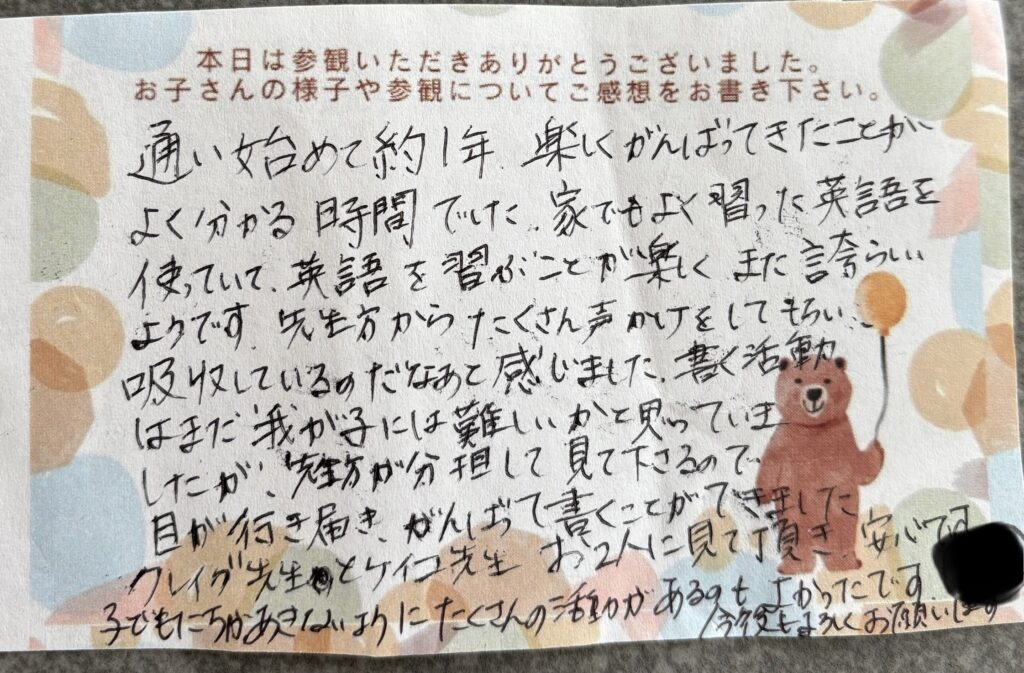 本日は参観いただきありがとうございました。
お子さんの様子や参観についてご感想をお書き下さい。
通い始めて約1年、楽しくがんばってきたことが、
よく分かる時間でした。家でもよく習った英語を
使っていて、英語を習ぶことが楽しく また誇らしい
ようです。先生方からたくさん声かけをしてもらい、
吸収しているのだなあと感じました。書く活動
はまだ我が子には難しいかと思っていま
したが、先生方が分担して見て下さるので、
目が行き届き、がんばって書くことができました
クレイグ先生とケイコ先生 お2人に見て頂き、安心です
子どもたちがあきないようにたくさんの活動があるのも よかったです
今後もよろしくお願いします